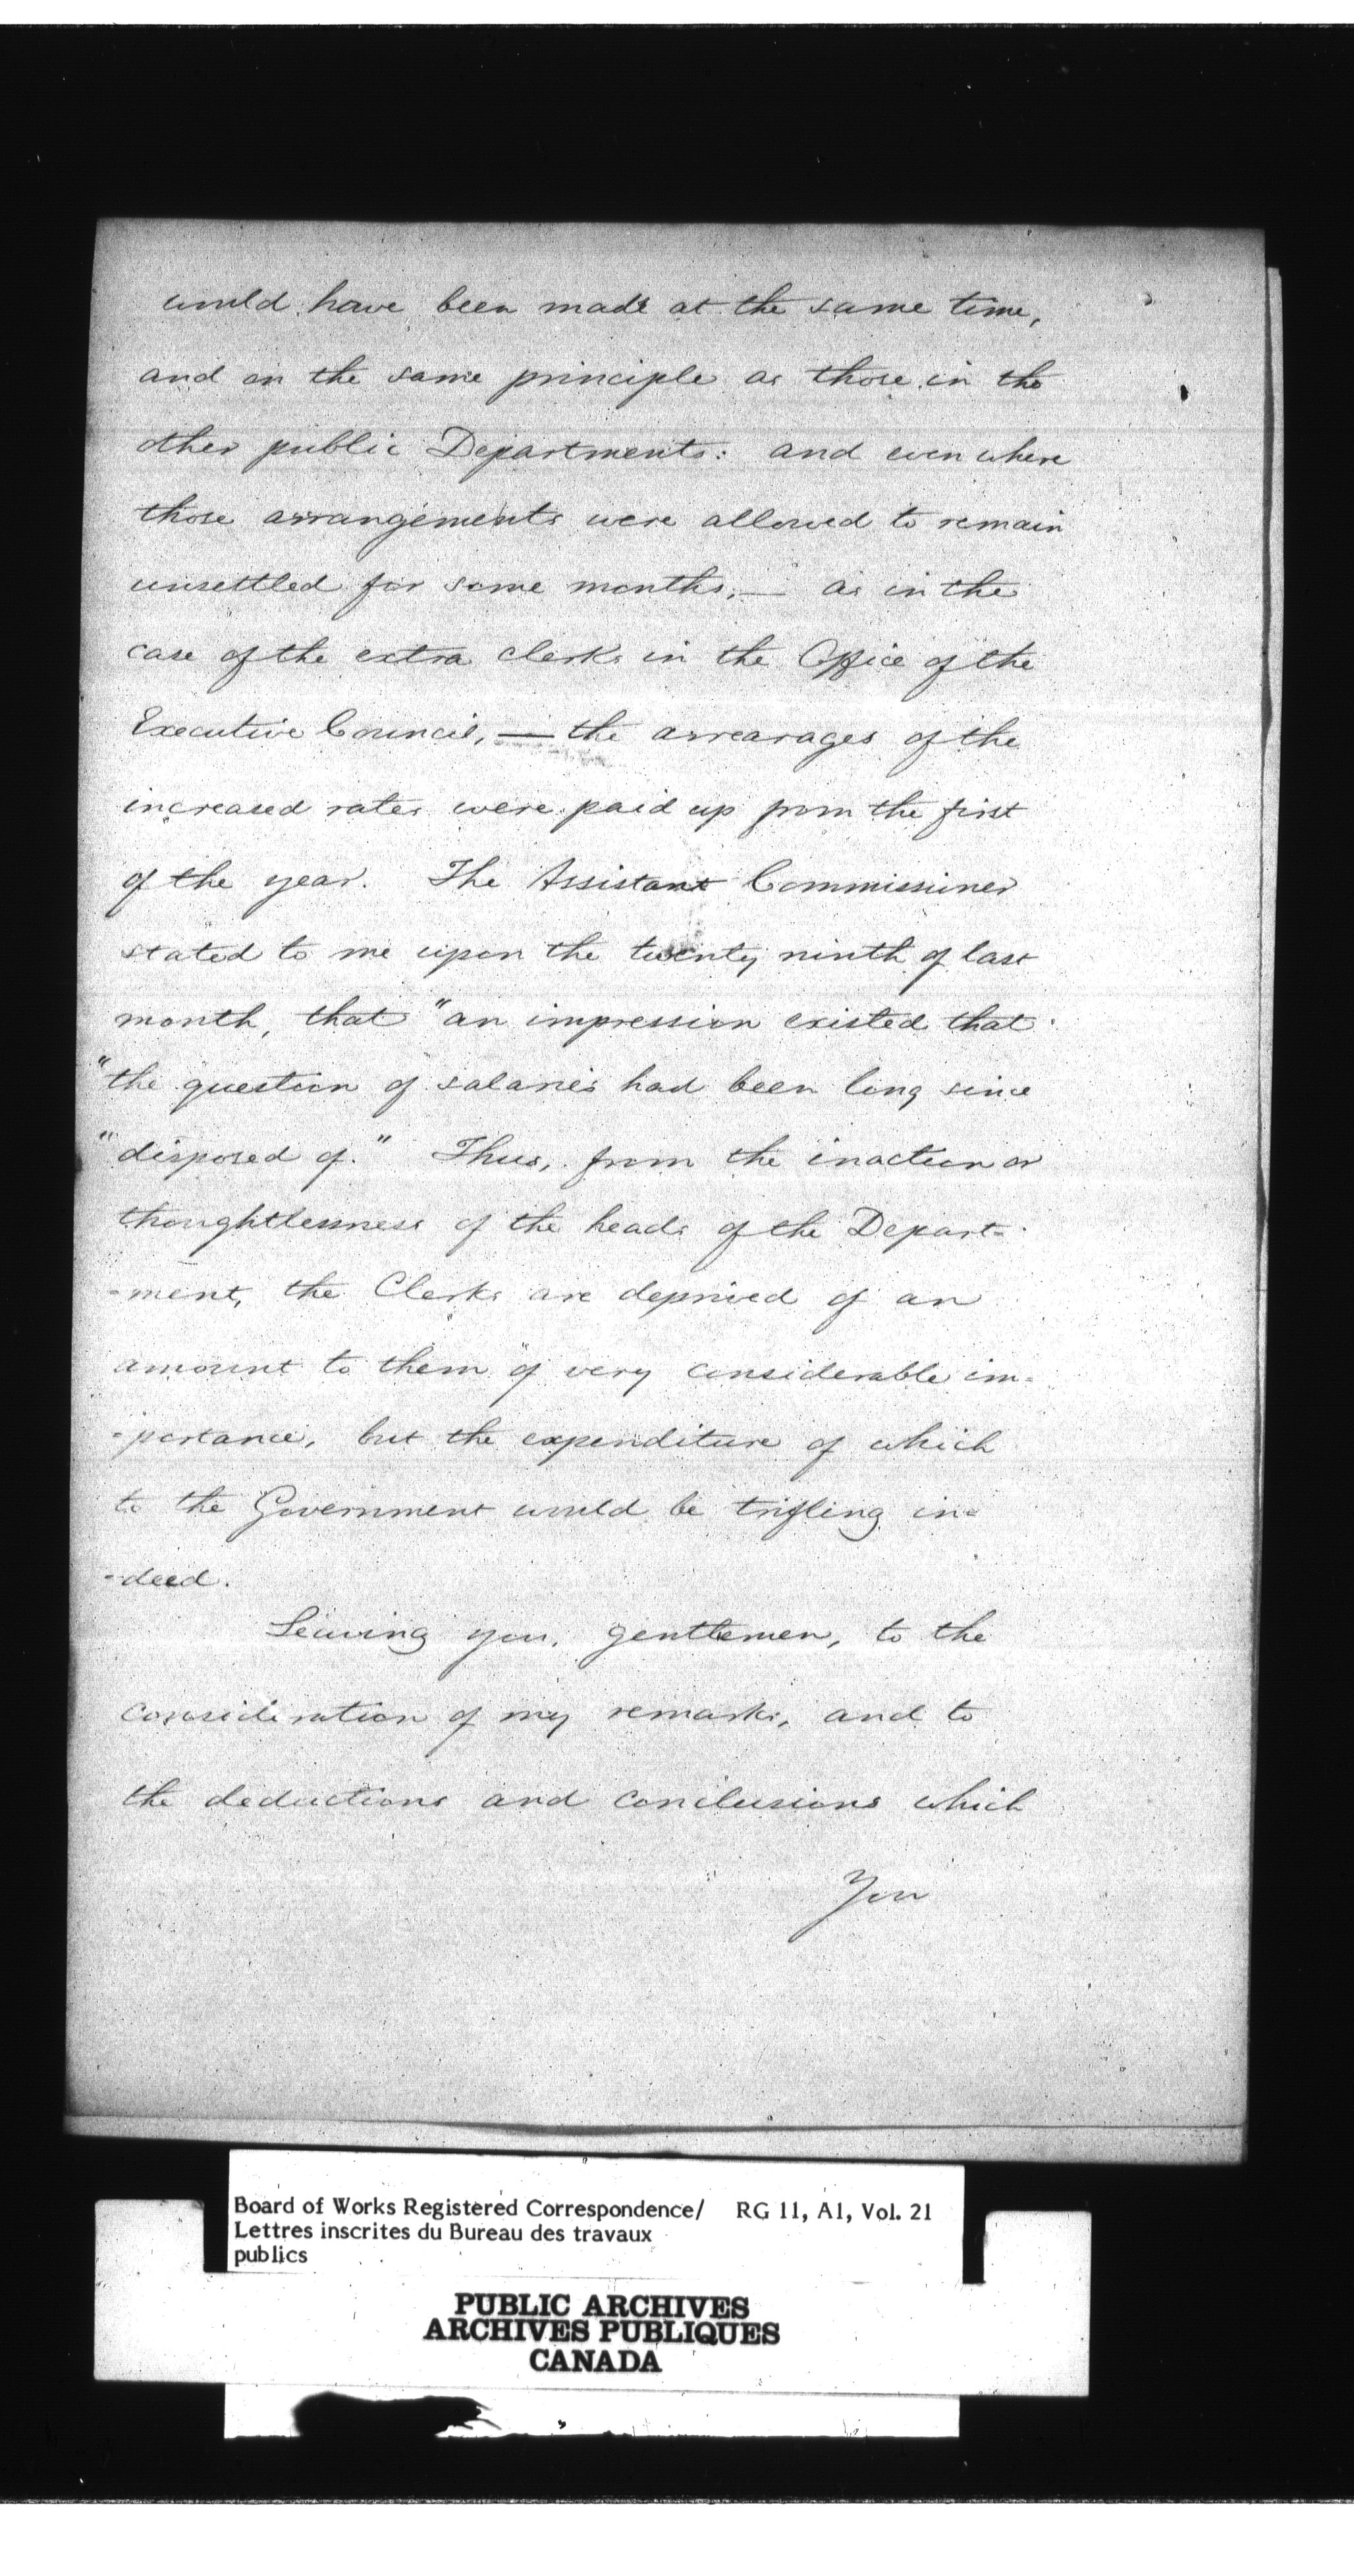 would have been made at the same time,
and on the same principle as those in the
other public Departments: and even where
those arrangements were allowed to remain
unsettled for some months, — as in the
case of the extra clerks in the Office of the
Executive Council, — the arrearages of the
increased rates were paid up from the first
of the year. The Assistant Commissioner
stated to me upon the twenty ninth of last
month, that "an impression existed that
"the question of salaries had been long since
"disposed of." Thus, from the inaction or
thoughtlessness of the heads of the Depart=
=ment, the Clerks are deprived of an
amount to them of very considerable im=
=portance, but the expenditure of which
to the Government would be trifling in=
=deed.
Leaving you, gentlemen, to the
consideration of my remarks, and to
the deductions and conclusions which
You
Board of Works Registered Correspondence/ RG 11, A1, Vol. 21
Lettres inscrites du Bureau des travaux
publics
PUBLIC ARCHIVES
ARCHIVES PUBLIQUES
CANADA